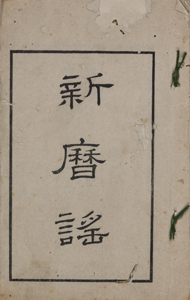 新曆謠